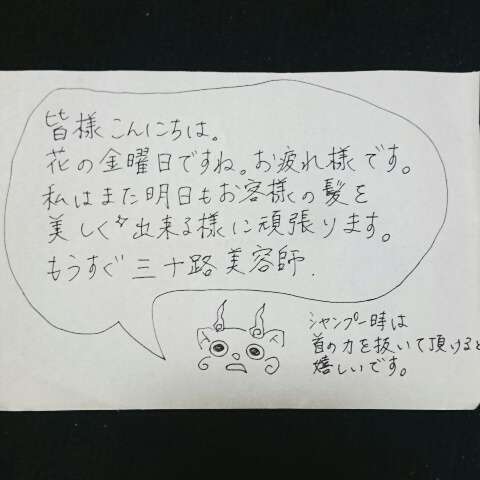 皆様こんにちは。
花の金曜日ですね。お疲れ様です。
私はまた明日もお客様の髪を
美しく出来る様に頑張ります。
もうすぐ三十路美容師.
シャンプー時は
首の力を抜いて頂けると
嬉しいです。